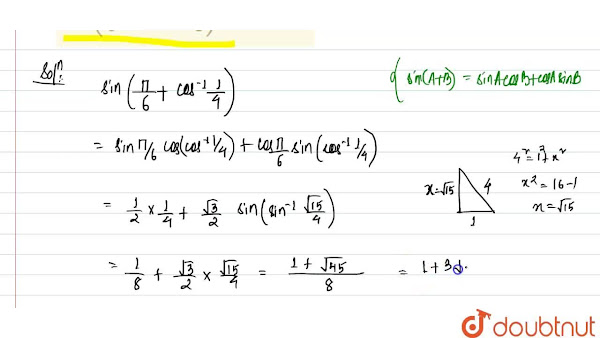 Solⁿ: sin(π/6 + cos⁻¹ 1/4) { sin(A+B) = sinA cosB + cosA sinB
= sin π/6 cos(cos⁻¹ 1/4) + cos π/6 sin(cos⁻¹ 1/4)
4² = 1² + x²
x² = 16 - 1
x = √15
x = √15 4
1
= 1/2 × 1/4 + √3/2 sin(sin⁻¹ √15/4)
= 1/8 + √3/2 × √15/4 = 1 + √45/8 = 1 + 3
doubtnut